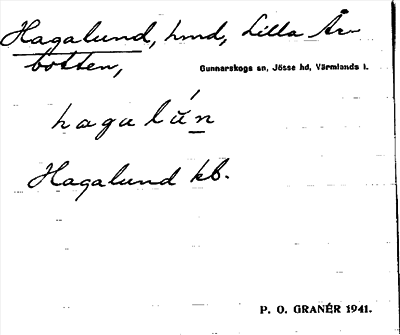 Hagalund, hmd, Lilla År-
botten,
Gunnarskogs sn, Jösse hd, Värmlands l.
hagalún
Hagalund kb.
P. O. GRANÉR 1941.